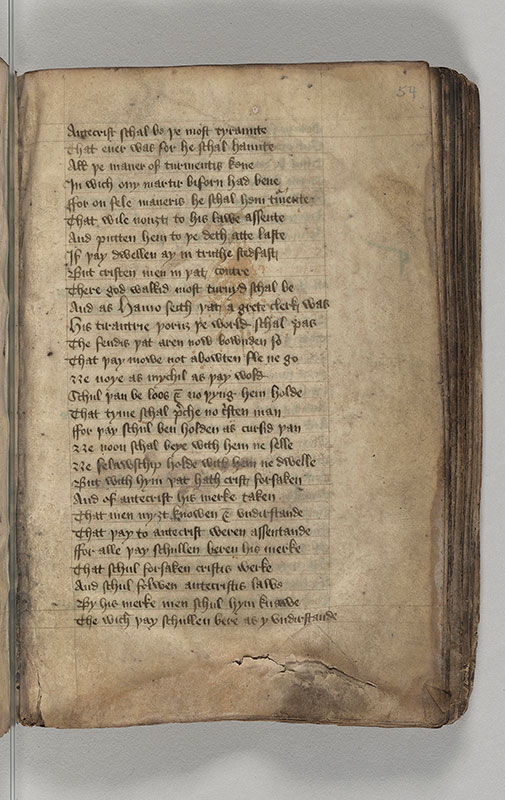 54
Antecrist schal be þe most tyraunte
That euer was for he schal haunte
All þe maner of turmentis kene
In wich ony martir biforn had bene
ffor on fele maneris he schal hem turmente
That wile nouȝt to his lawe assente
And putten hem to þe deth atte laste
If þay dwellen ay in truthe stedfast
But cristen men in þat contre
There god walkid most turnyd schal be
And as Haimo seith þat a grete clerk was
His tirauntrie þoruȝ þe world schal pas
The fendis þat aren now bownden so
That þay mowe not abowten fle ne go
Ne noye as mychil as þay wold
Schul þan be loos & no þyng hem holde
That tyme schal p̄che no c̄sten man
ffor þay schul ben holden as cursid þan
Ne noon schal beye with hem ne selle
Ne felawschip holde with hem ne dwelle
But with hym þat hath crist forsaken
And of antecrist his merke taken
That men myȝt knowen & vndirstande
That þay to antecrist weren assentande
ffor alle þay schullen beren his merke
That schul forsaken cristis werke
And schul folwen antecristis laws
By his merke men schul hym knawe
The wich þay schullen bere as y vndirstande